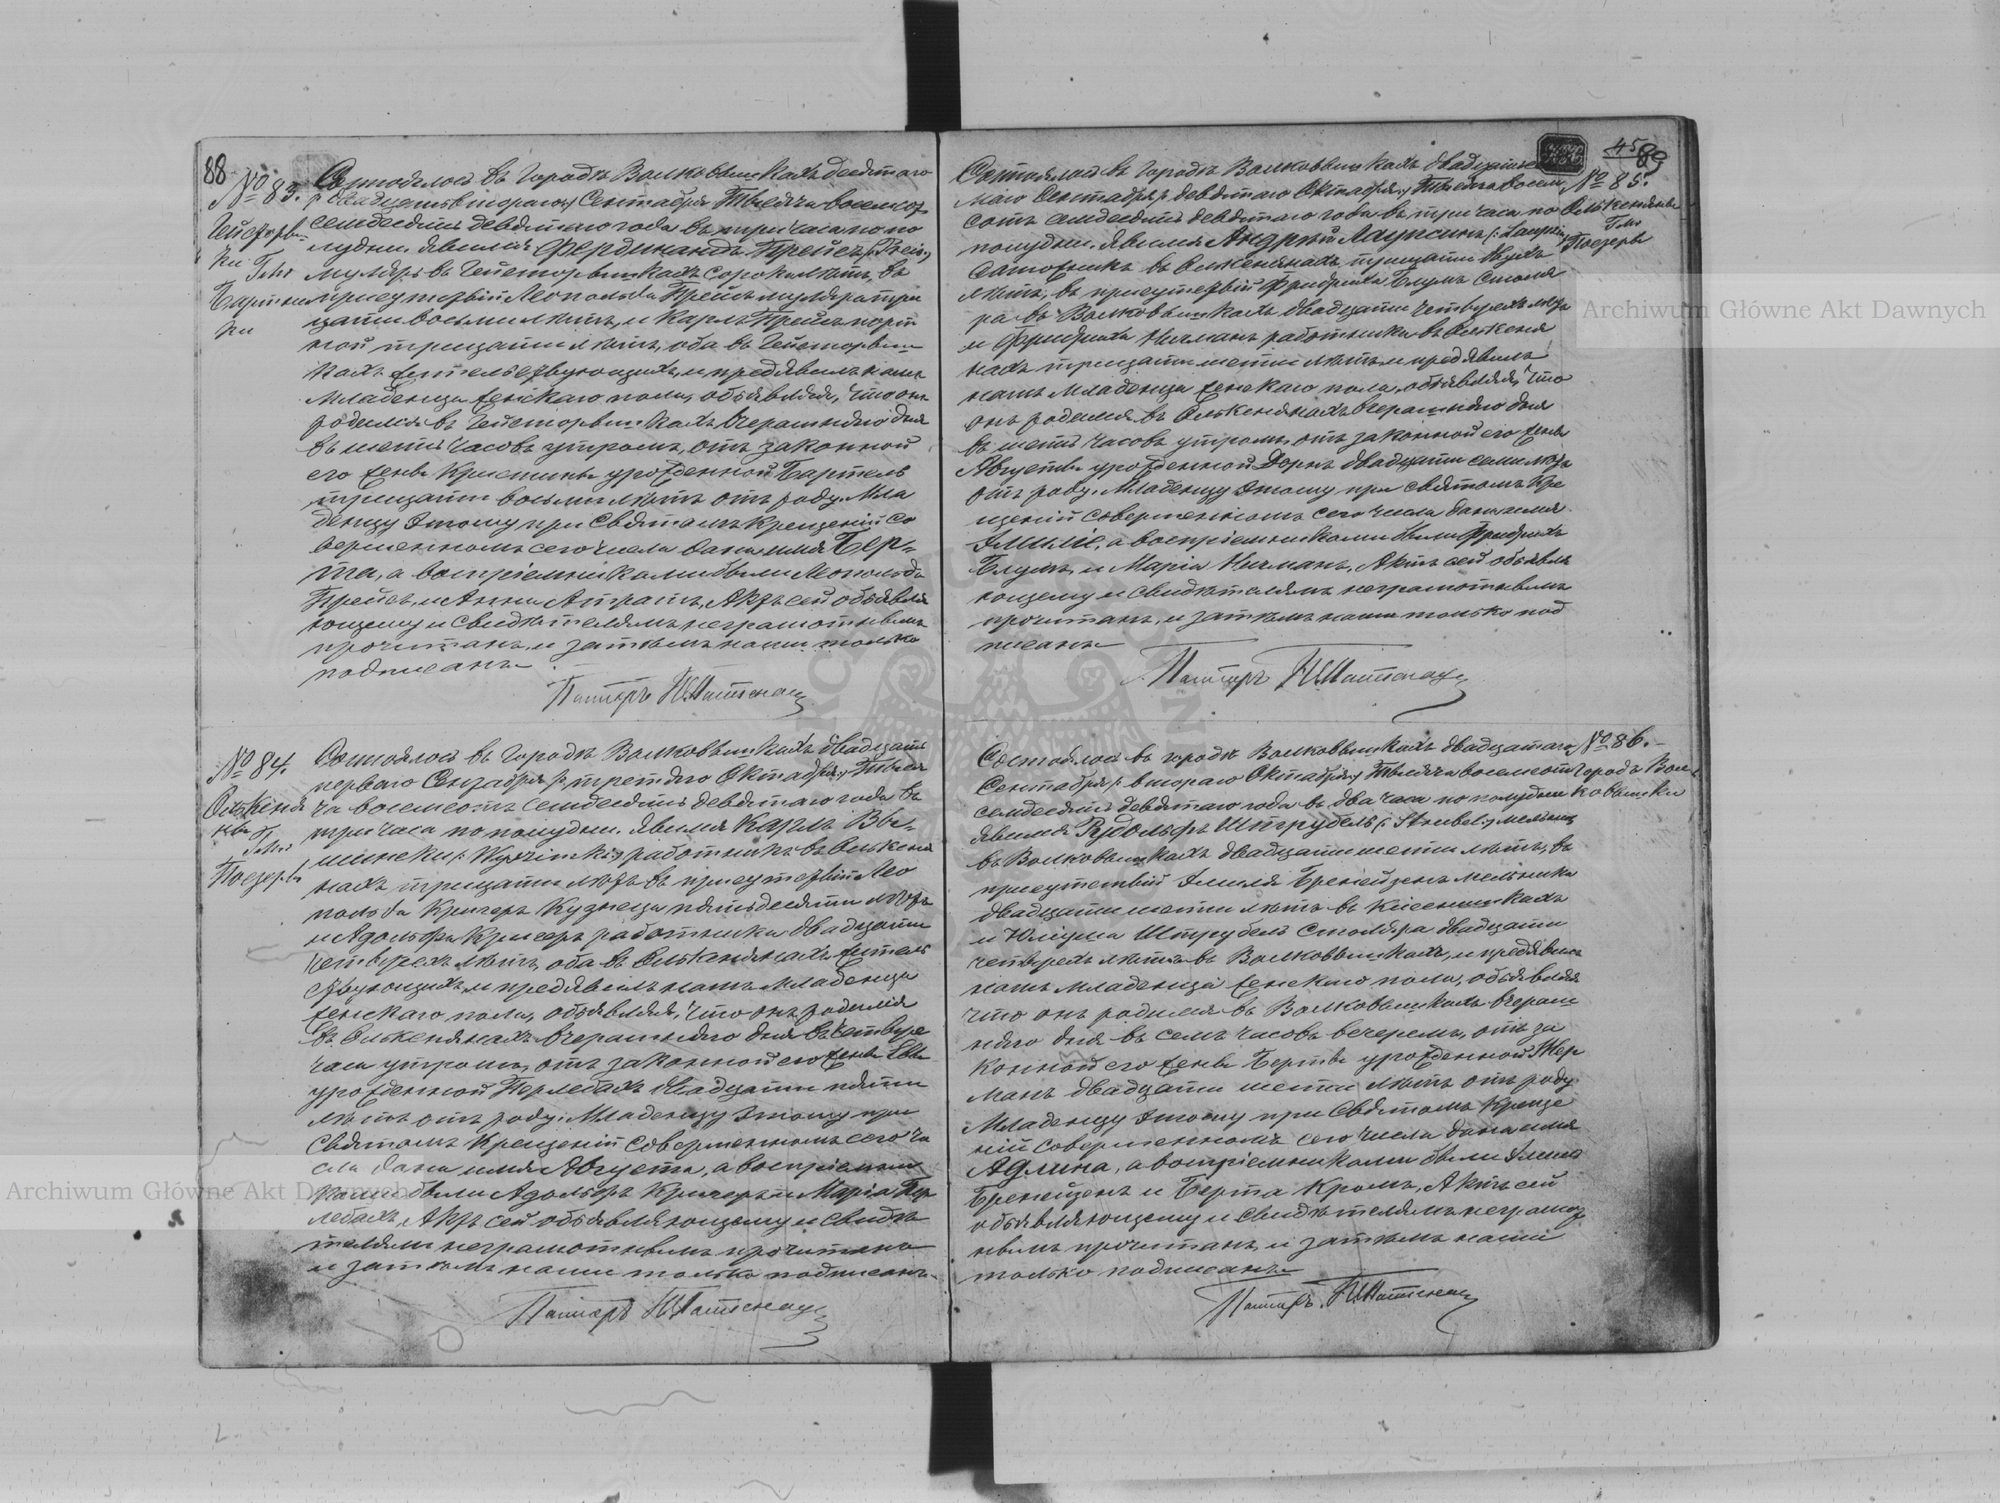 88
№ 83.
Гмн
Бартни
ки
Состоялось въ городѣ Волковышкахъ десятаго
/: двадцать втораго:/ Сентября Тысяча восемсотъ
семдесятъ девятаго года въ три часа по по
лудни. Явился Фердинандъ Прейсъ /: Preis:/
муляръ въ сорока лѣтъ, въ
присутствіи Леопольда Прейсъ муляра три
цати восьми лѣтъ, и Карлъ Прейсъ порт
ной трицати лѣтъ, оба въ
кахъ жительствующихъ, и предъявилъ намъ
младенца женскаго пола, объявляя, что онъ
родился въ вчерашняго дня
въ шесть часовъ утромъ, отъ законной
его жены Кристины урожденной Бартель
трицати восьми лѣтъ отъ роду. Мла
денцу этому при Святомъ Крещеніи со
вершенномъ сего числа дано имя Бер-
та, а воспріемниками были Леопольдъ
Прейсъ, и Анна Актъ сей объявля
ющему и свидѣтелямъ неграмотнымъ
прочитанъ, и затѣмъ нами только
подписанъ
Пасторъ
№ 84.
Гмн
Поезеры
Состоялось въ городѣ Волковышкахъ двадцать
перваго Сентября /: третяго Октября:/ Тыся
ча восемсотъ семдесятъ девятаго года въ
три часа по полудни. Явился Карлъ Вы-
шинскій работникъ въ Олькеня
нахъ трицати лѣтъ въ присутствіи Лео
польда Кригеръ Кузнеца пятьдесяти лѣтъ
и Адольфа Кригеръ работника двадцати
четырехъ лѣтъ, оба въ Олькенянахъ жительс
ствующихъ, и предъявилъ намъ младенца
женскаго пола, объявляя, что онъ родился
въ Олькенянахъ вчерашняго дня въ четыре
часа утромъ, отъ законной его жены Евы
урожденной Перлебахъ двадцати пяти
лѣтъ отъ роду. Младенцу этому при
Святомъ Крещеніи совершенномъ сего чи
сла дано имя Августа, а воспріемни
ками были Адольфъ Кригеръ и Марія Пер
лебахъ, Актъ сей объявляющему и свидѣ
телямъ неграмотнымъ прочитанъ
и затѣмъ нами только подписанъ.
Пасторъ
45
89
№ 85.
Олькеняны
Гмн
Поезеры
Состоялось въ городѣ Волковышкахъ двадцать
маго Сентября /: девятаго Октября:/ Тысяча восем
сотъ семдесятъ девятаго года въ три часа по
полудни. Явился Андрей Лауксинъ
въ Олькенянахъ трицати двухъ
лѣтъ, въ присутствіи Фридриха Блумъ столя
ра въ Волковышкахъ двадцати четырехъ лѣтъ
и Фридриха Нигманъ работника въ Олькеня
нахъ трицати шести лѣтъ и предъявилъ
намъ младенца женскаго пола, объявляя, что
онъ родился въ Олькенянахъ вчерашняго дня
въ шесть часовъ утромъ, отъ законной его жены
Августы урожденной Дорнъ двадцати семи лѣтъ
отъ роду. Младенцу этому при Святомъ Кре
щеніи совершенномъ сего числа дано имя
Эмиліе, а воспріемниками были Фридрихъ
Блумъ, и Марія Нигманъ, Актъ сей объявля
ющему и свидѣтелямъ неграмотнымъ
прочитанъ, и затѣмъ нами только под
писанъ
Пасторъ
№ 86.
Городъ Вол-
ковышки
Состоялось въ городѣ Волковышкахъ двадцатаго
Сентября /: втораго Октября:/ Тысяча восемсотъ
семдесятъ девятаго года въ два часа по полудни
Явился Рудольфъ Штрубель /: Strubel:/ мельникъ
въ Волковышкахъ двадцати шести лѣтъ, въ
присутствіи Эмиля мельника
двадцати шести лѣтъ въ
и Юліуса Штрубель столяра двадцати
четырехъ лѣтъ въ Волковышкахъ, и предъявилъ
намъ младенца женскаго пола, объявляя
что онъ родился въ Волковышкахъ вчераш
няго дня въ семь часовъ вечеромъ, отъ за
конной его жены Берты урожденной
манъ двадцати шести лѣтъ отъ роду
Младенцу этому при Святомъ Креще
ніи совершенномъ сего числа дано имя
Адлина, а воспріемниками были Эмиль
и Берта Кромъ, Актъ сей
объявляющему и свидѣтелямъ неграмот
нымъ прочитанъ, и затѣмъ нами
только подписанъ
Пасторъ
Archiwum Główne Akt Dawnych
Archiwum Główne Akt Dawnych